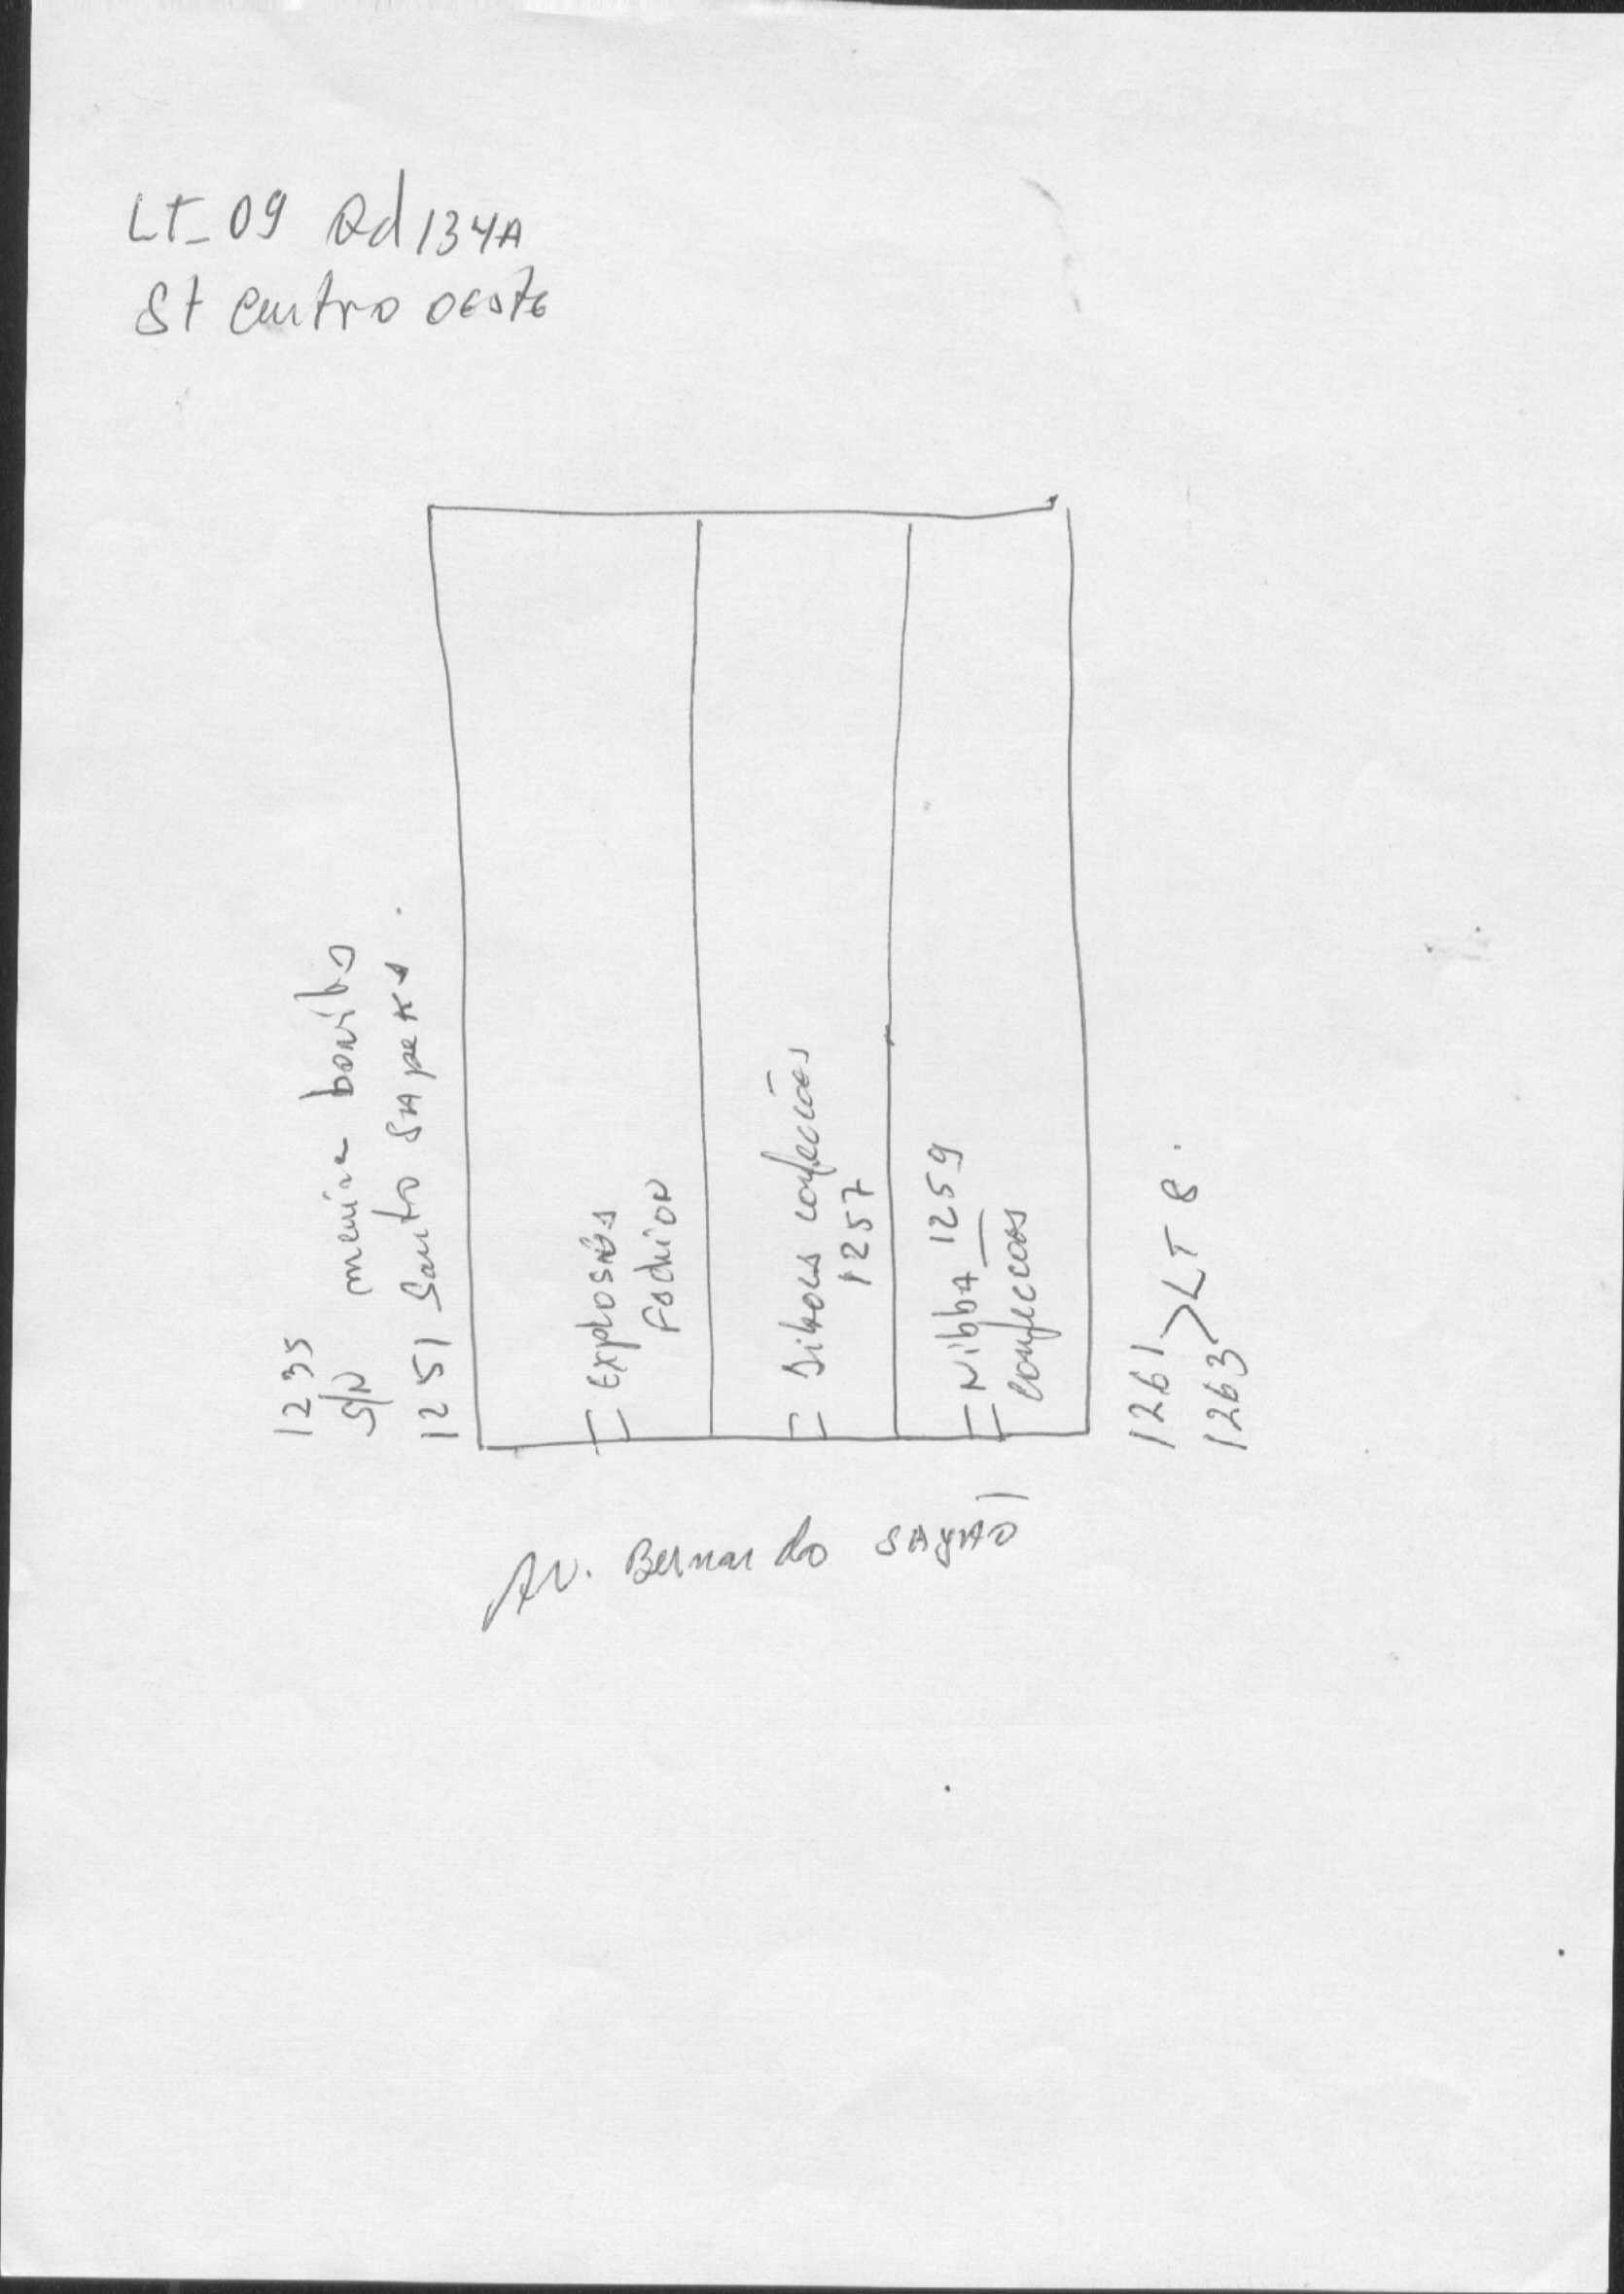 LT_ 09 Qd 134A
St centro oeste
1235
S/N menina bonita
1251 Santo
Explosão
Fashion
confecções
1257
Nibba 1259
confeccoes
1261 > LT 8.
1263
Av. Bernardo SAYÃO